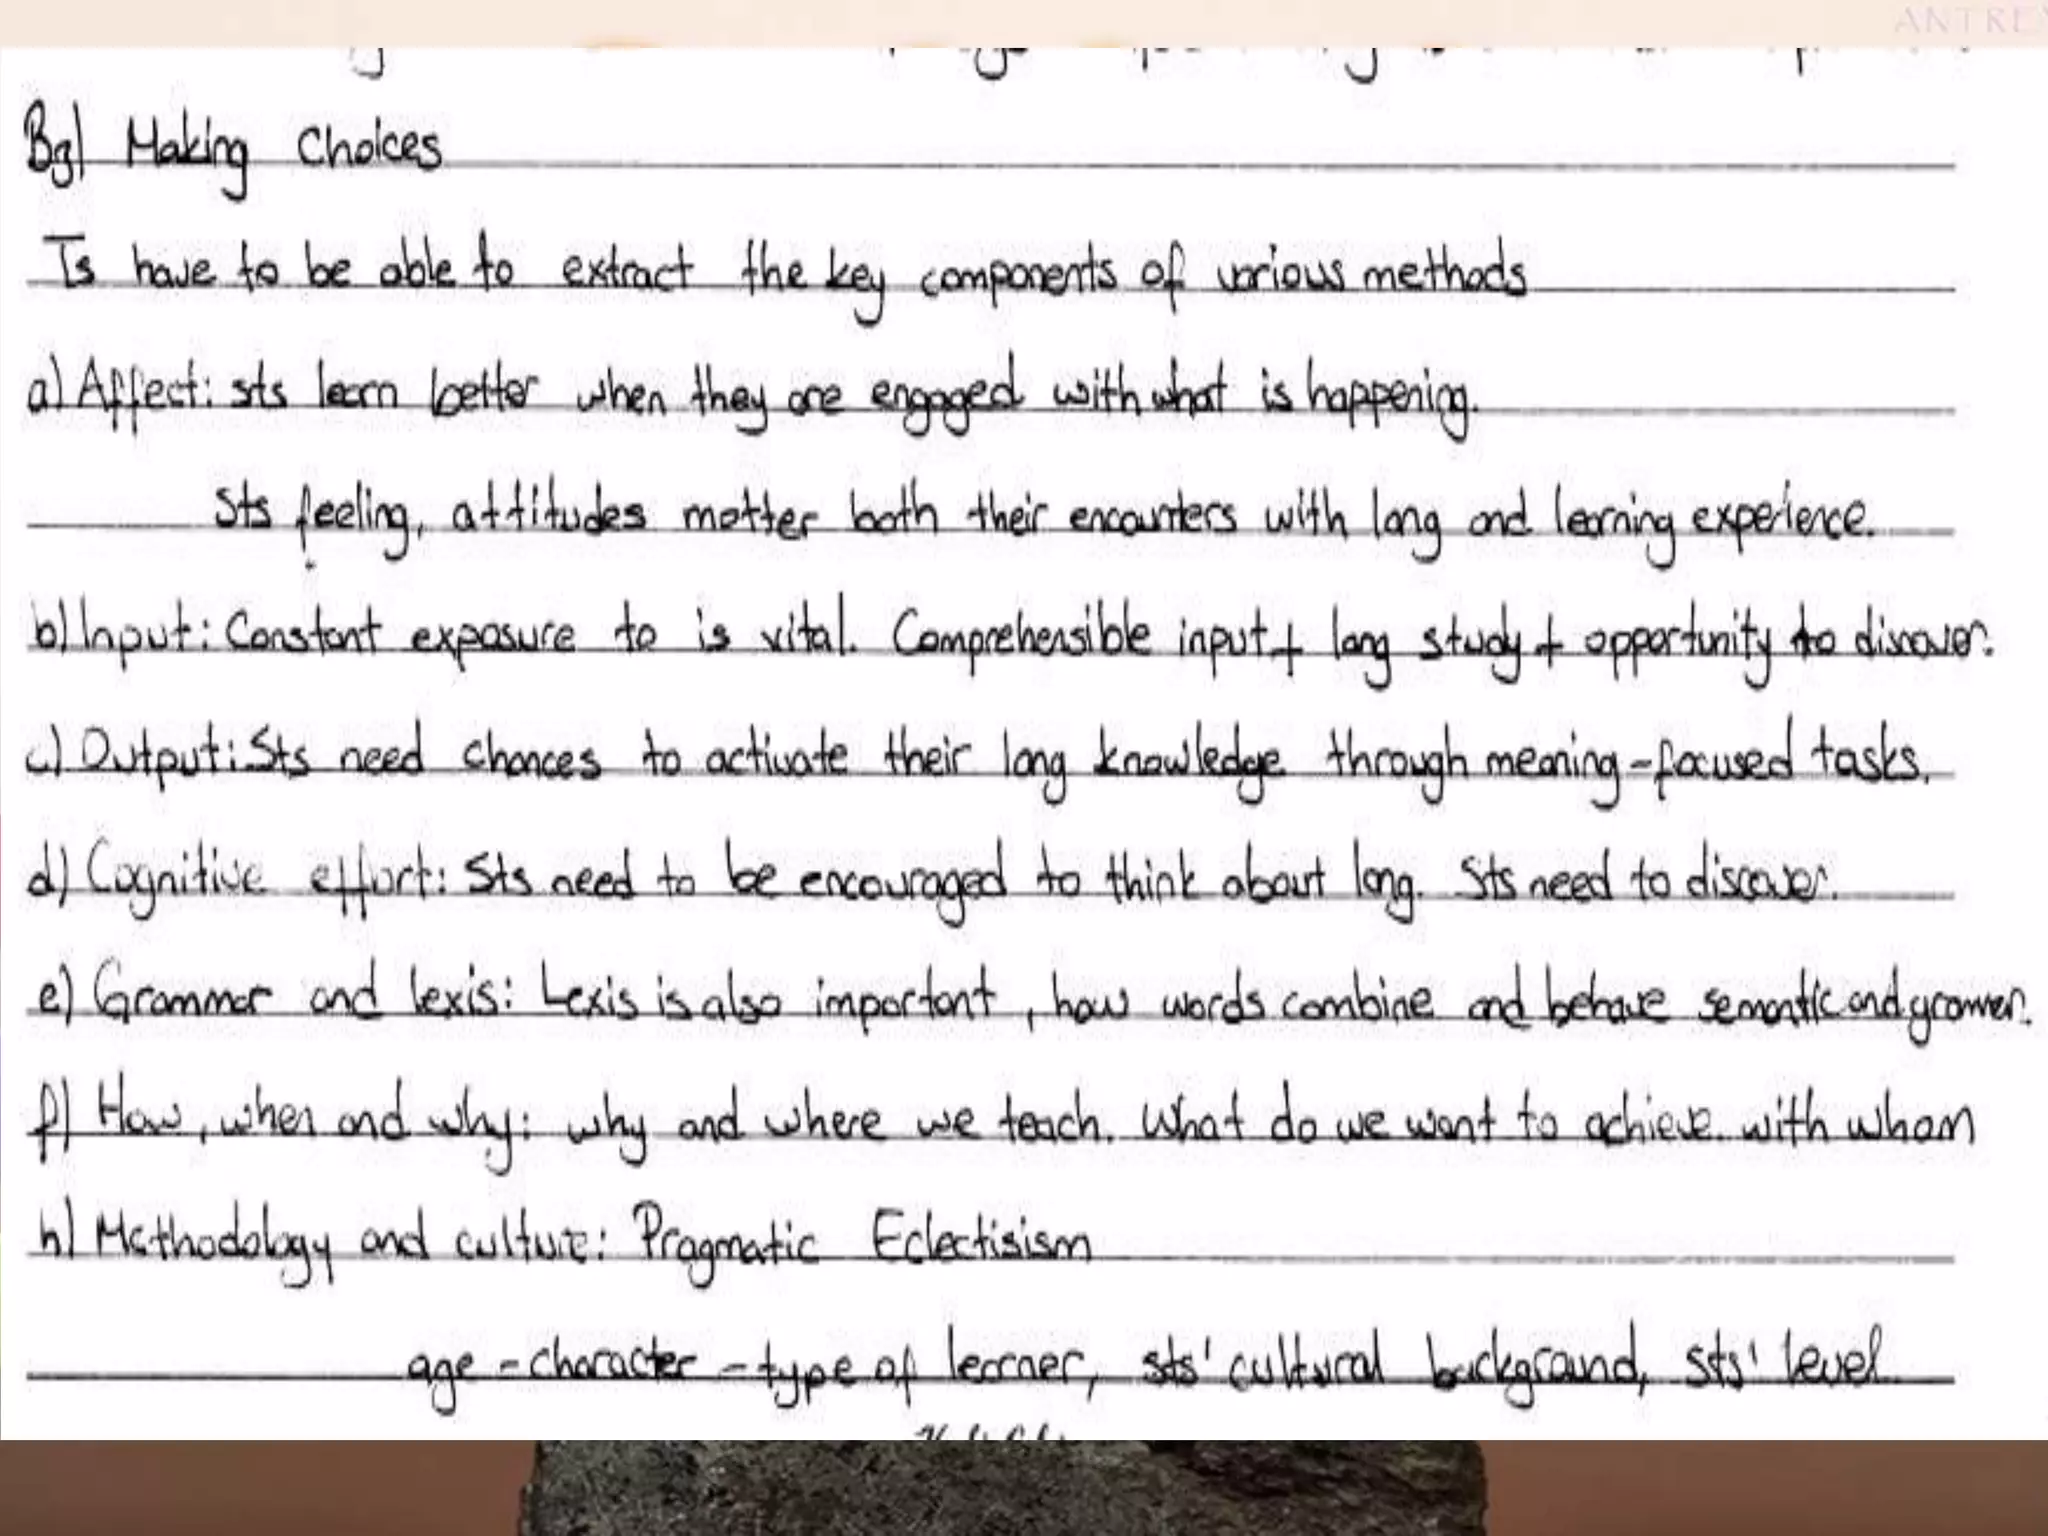 ANTRE
B3) Making Choices
Ts have to be able to extract the key components of various methods
a) Affect: sts learn better when they are engaged with what is happening.
Sts feeling, attitudes matter both their encounters with lang and learning experience.
b) Input: Constant exposure to is vital. Comprehensible input + lang study + opportunity to discover.
c) Output: Sts need chances to activate their lang knowledge through meaning-focused tasks.
d) Cognitive effort: Sts need to be encouraged to think about lang. Sts need to discover.
e) Grammar and lexis: Lexis is also important, how words combine and behave semantic and grammer.
f) How, when and why: why and where we teach. What do we want to achieve. with whom
h) Methodology and culture: Pragmatic Eclectisism
age - character - type of learner, sts' cultural background, sts' level